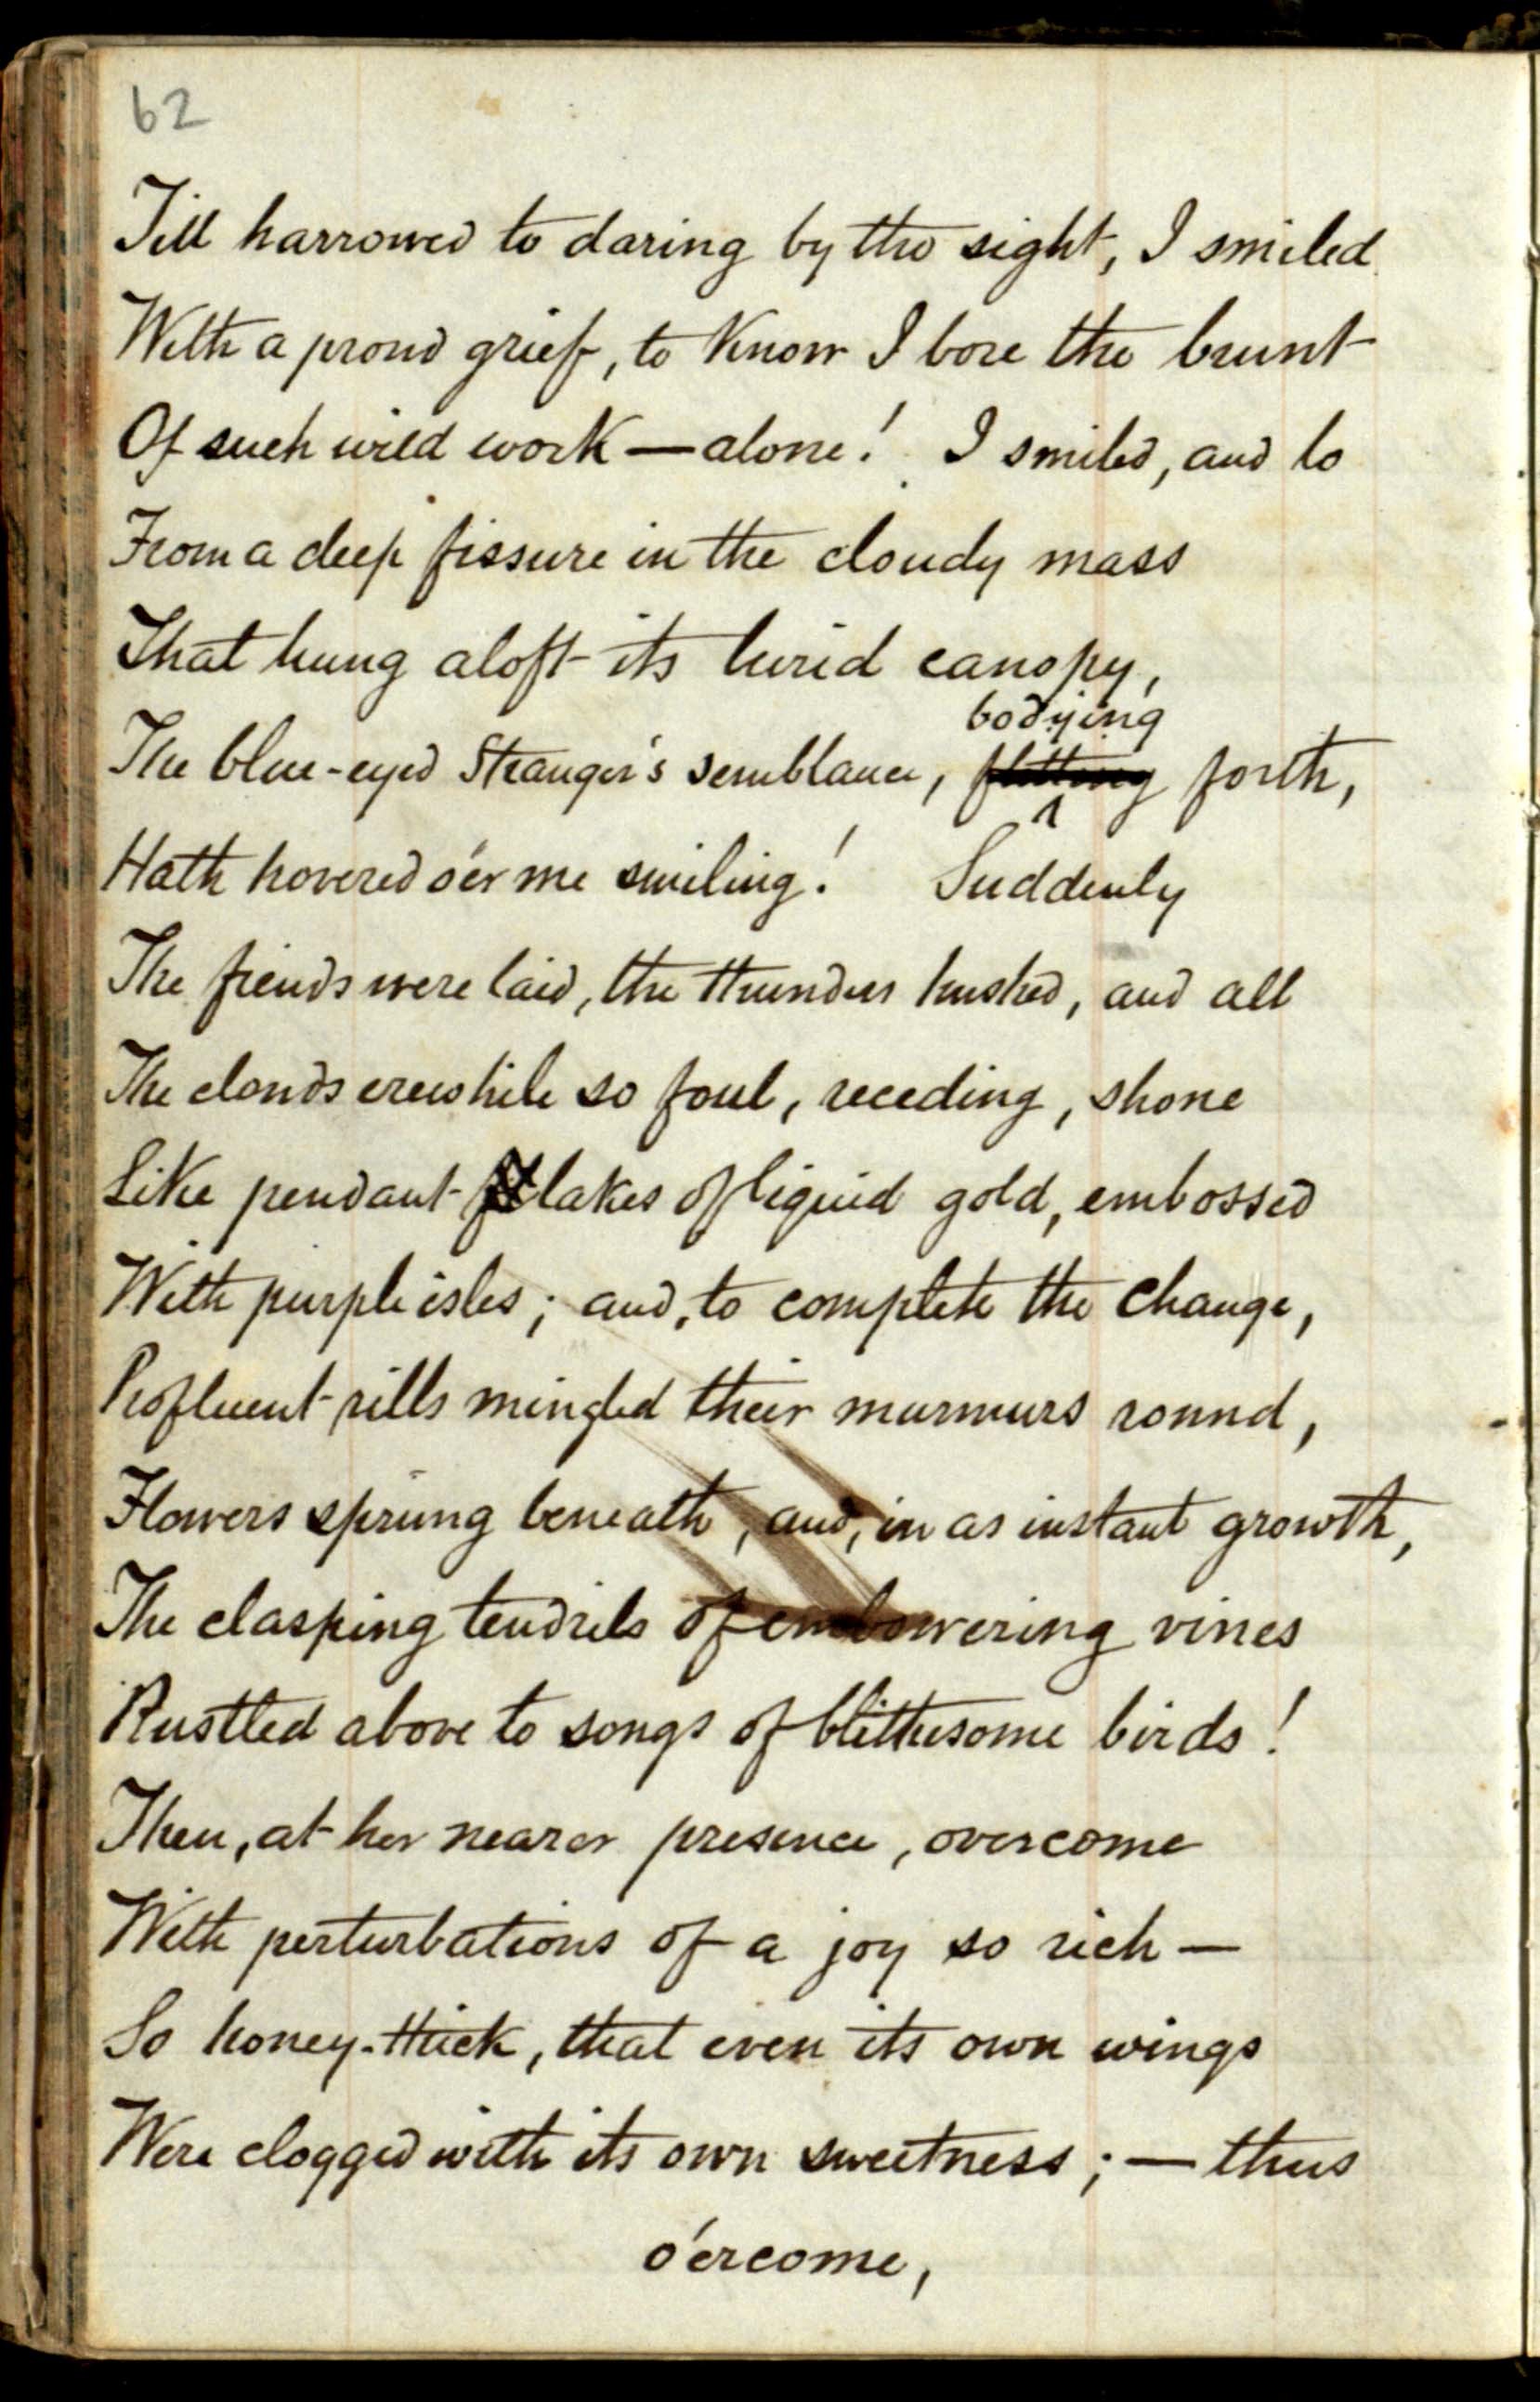 62
Till harrowed to daring by the sight, I smiled
With a proud grief, to know I bore the brunt
Of such wild work — alone! I smiled, and lo
From a deep fissure in the cloudy mass
That hung aloft its lurid canopy,
bodying
The blue-eyed Stranger's semblance, flitting forth,
Hath hovered o'er me smiling! Suddenly
The fiends were laid, the thunders hushed, and all
The clouds erewhile so foul, receding, shone
Like pendant lakes of liquid gold, embossed
With purple isles; and, to complete the change,
Profluent rills mingled their murmurs round,
Flowers sprung beneath, and, in as instant growth,
The clasping tendrils of embowering vines
Rustled above to songs of blithesome birds!
Then, at her nearer presence, overcome
With perturbations of a joy so rich —
So honey-thick, that even its own wings
Were clogged with its own sweetness; — thus
o'ercome,